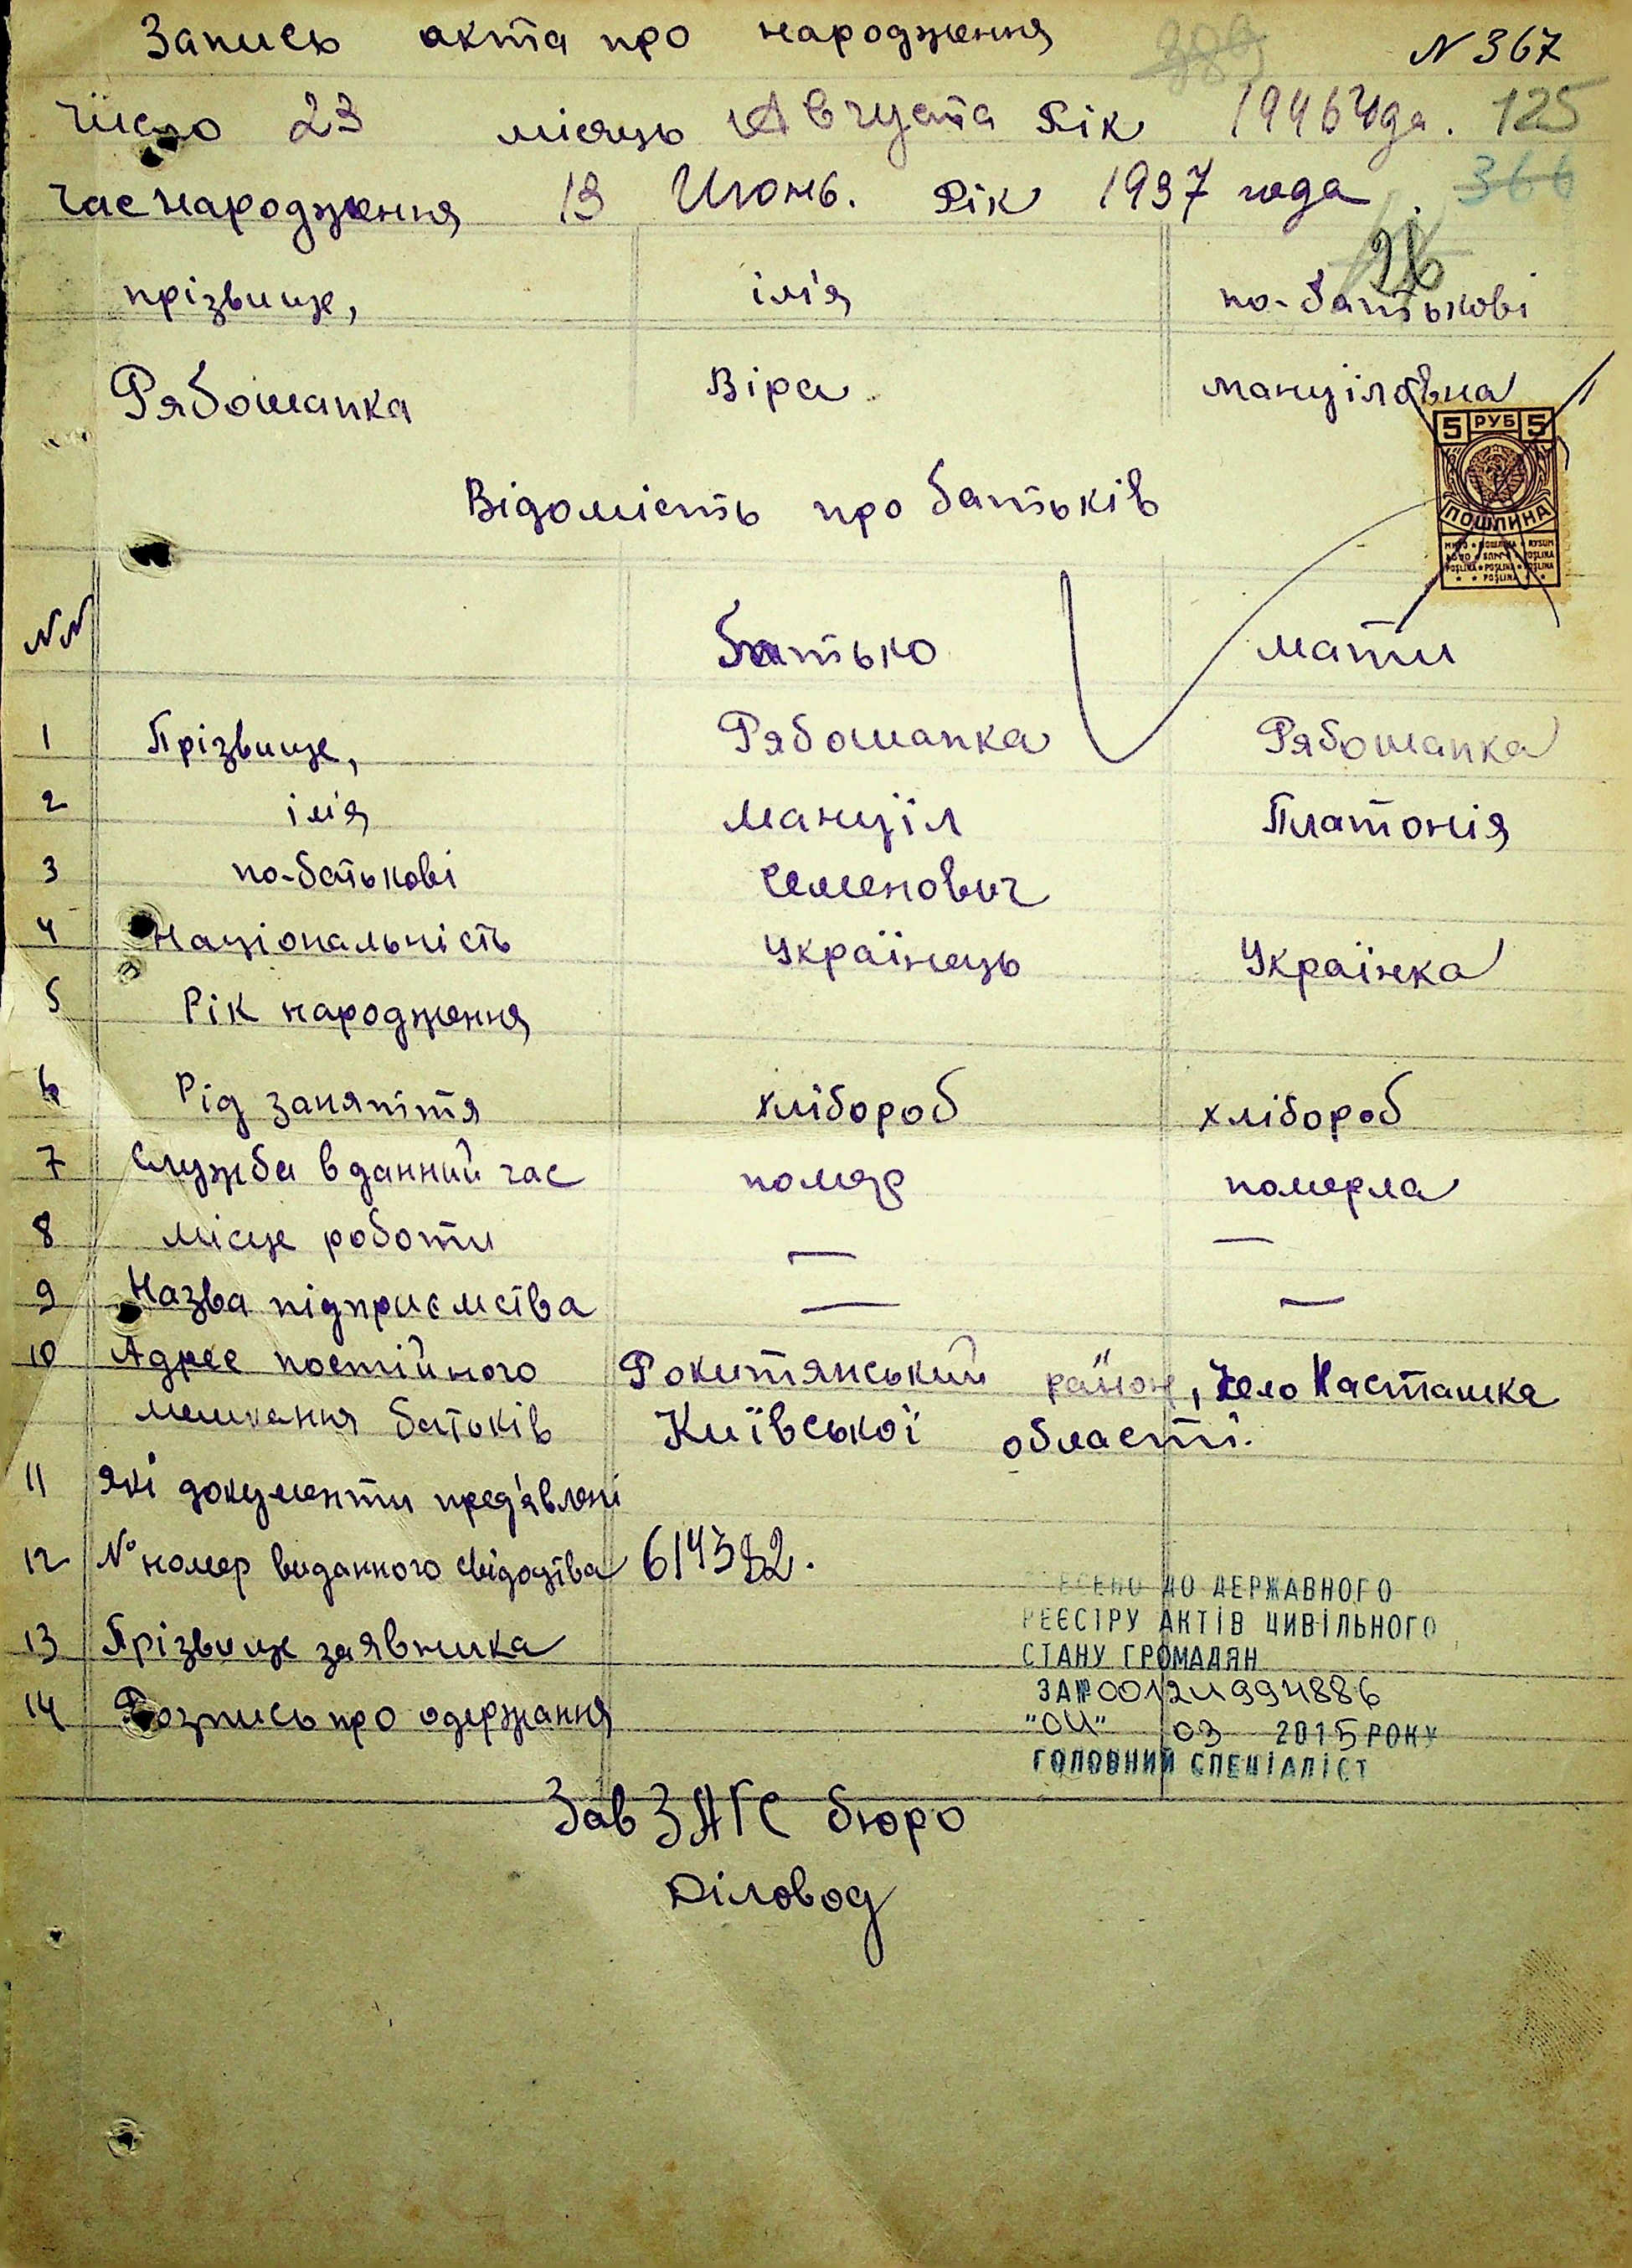 Запись акта про народження N 367
389
Число 23 місяць Августа Рік 1946 года. 125
Час народження 13 Июнь. Рік 1937 года. 366
26
прізвище, ім'я по-батькові
Рябошапка Віра Мануіловна
5 РУБ 5
ПОШЛИНА
Відомість про батьків
NN Батько мати
1 Прізвище, Рябошапка Рябошапка
2 ім'я Мануіл Платонія
3 по-батькові Семенович
4 Національність Українець Українка
5 Рік народження
6 Рід заняття хлібороб хлібороб
7 Служба в данний час помер померла
8 місце роботи — —
9 Назва підприємства — —
10 Адрес постійного Рокитянський район, село Насташка
мешкання батьків Київської області.
11 які документи пред'явлені
12 № номер виданного свідоцтва 614382.
13 Прізвище заявника
14 Розпись про одержання
ВНЕСЕНО ДО ДЕРЖАВНОГО
РЕЄСТРУ АКТІВ ЦИВІЛЬНОГО
СТАНУ ГРОМАДЯН
ЗА№00124994886
"04" 03 2015 РОКУ
ГОЛОВНИЙ СПЕЦІАЛІСТ
Зав ЗАГС бюро
Діловод